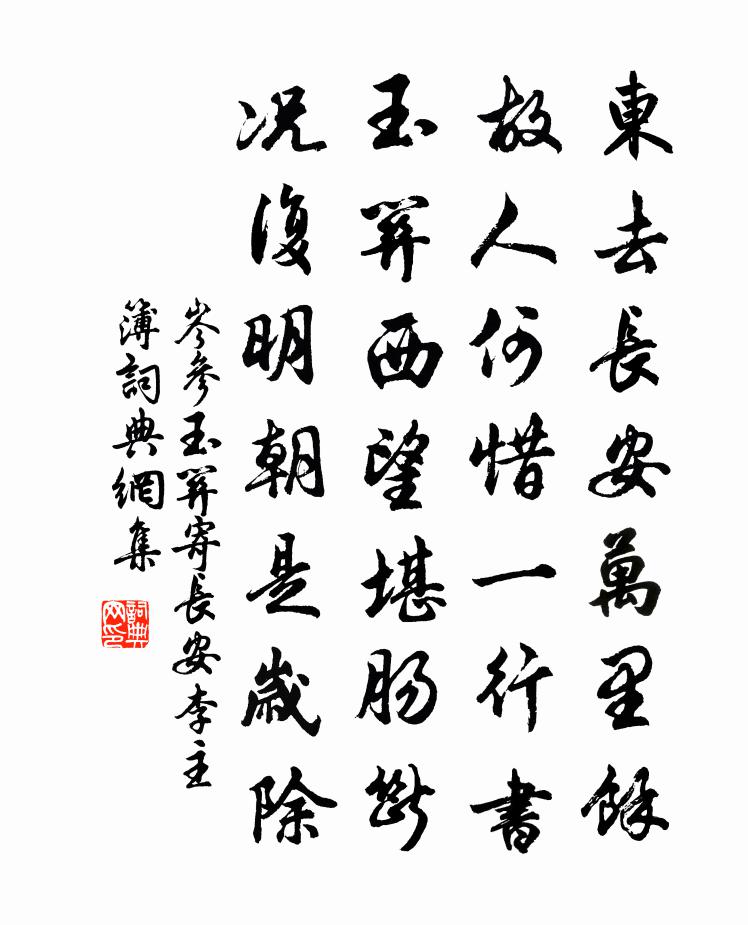 東去長安萬里餘
故人何惜一行書
玉關西望堪腸斷
況復明朝是歲除
岑參玉關寄長安李主
簿詞典網集
詞典网印